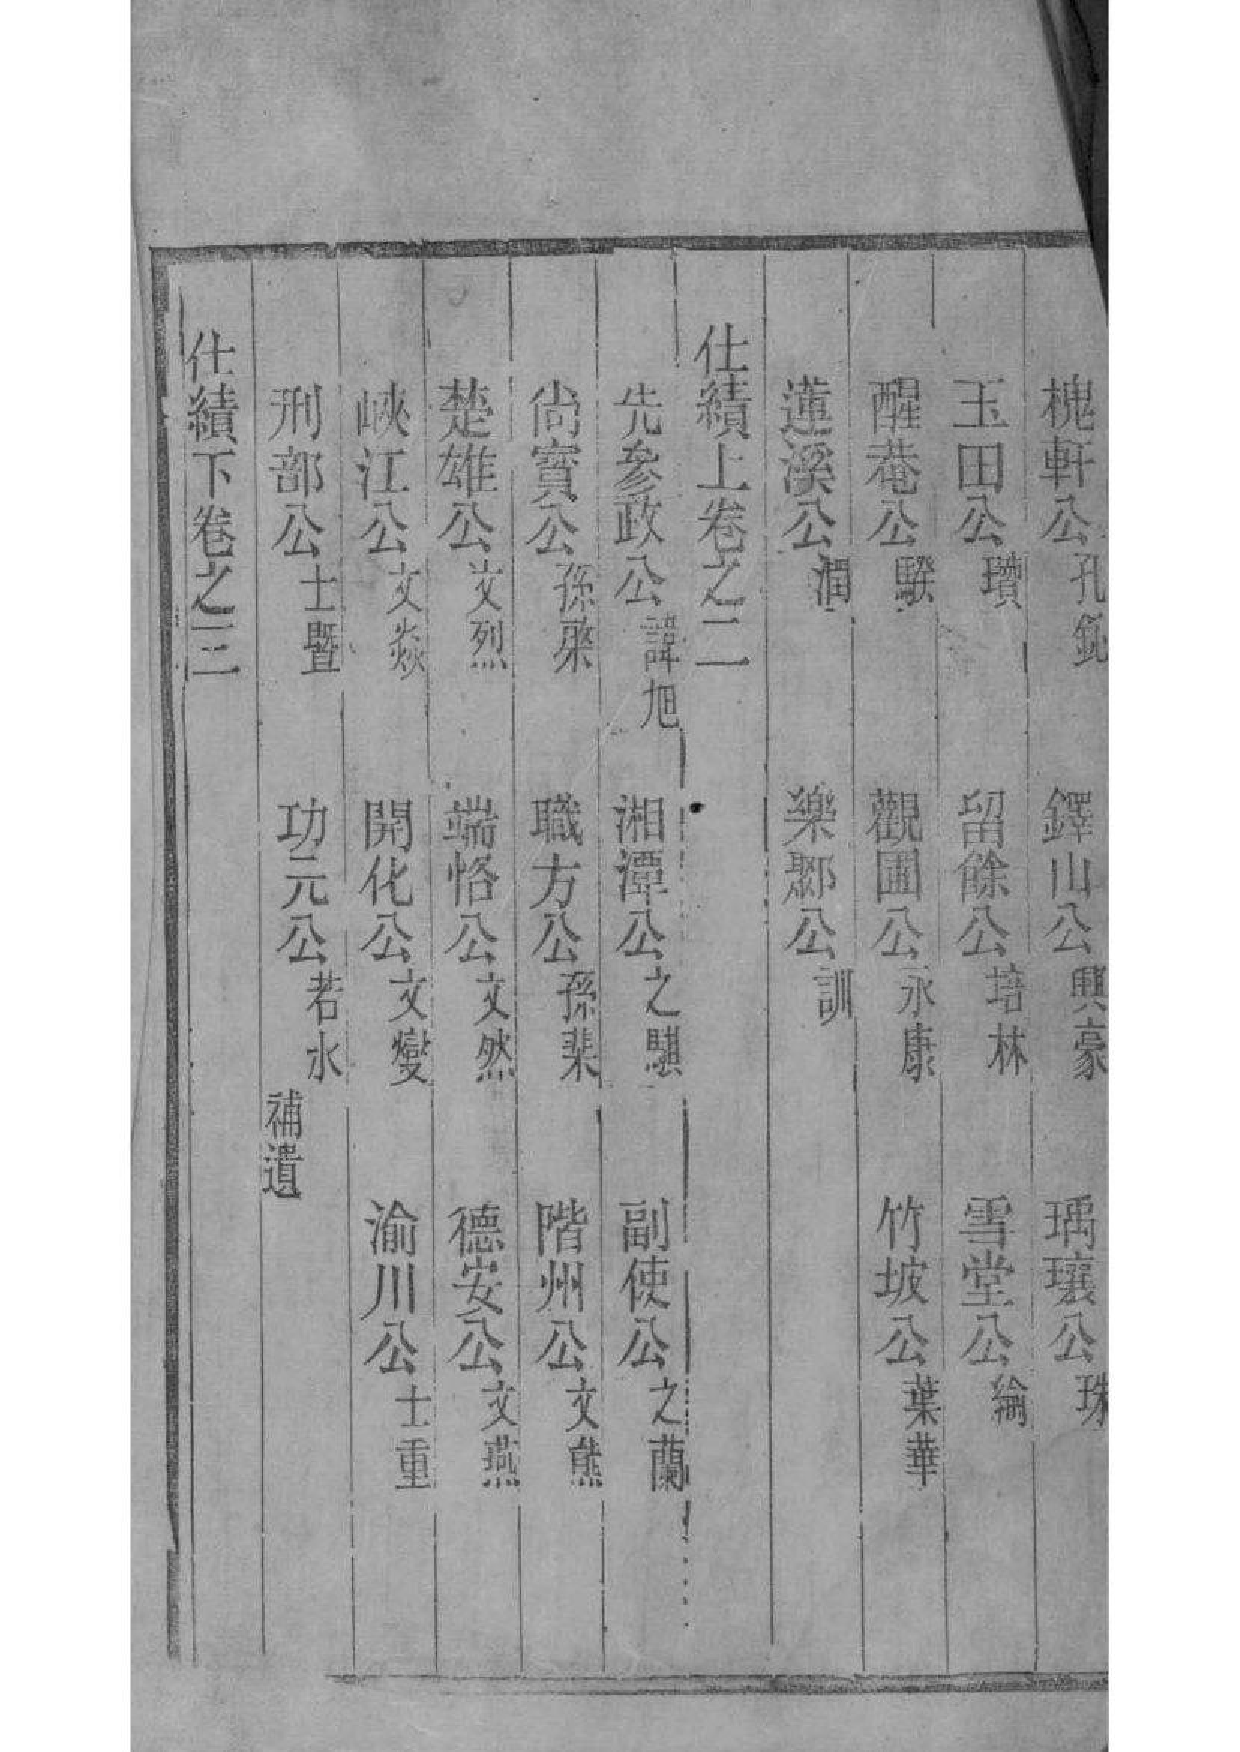 槐軒公 孔 鐸山公 興豪 瑀瓌公 珠
玉田公 瓚 留餘公 培林 雪堂公 綸
醒菴公 騤 觀圃公 永康 竹坡公 葉華
蓮溪公 潤 樂鄹公 訓
仕績上卷之二
先參政公 諱旭 湘潭公 之騏 副使公 之蘭
尚寶公 孫棨 職方公 孫棐 階州公 文熊
楚雄公 文烈 端恪公 文然 德安公 文燕
峽江公 文焱 開化公 文燮 渝川公 士重
刑部公 士暨 功元公 若水 補遺
仕績下卷之三